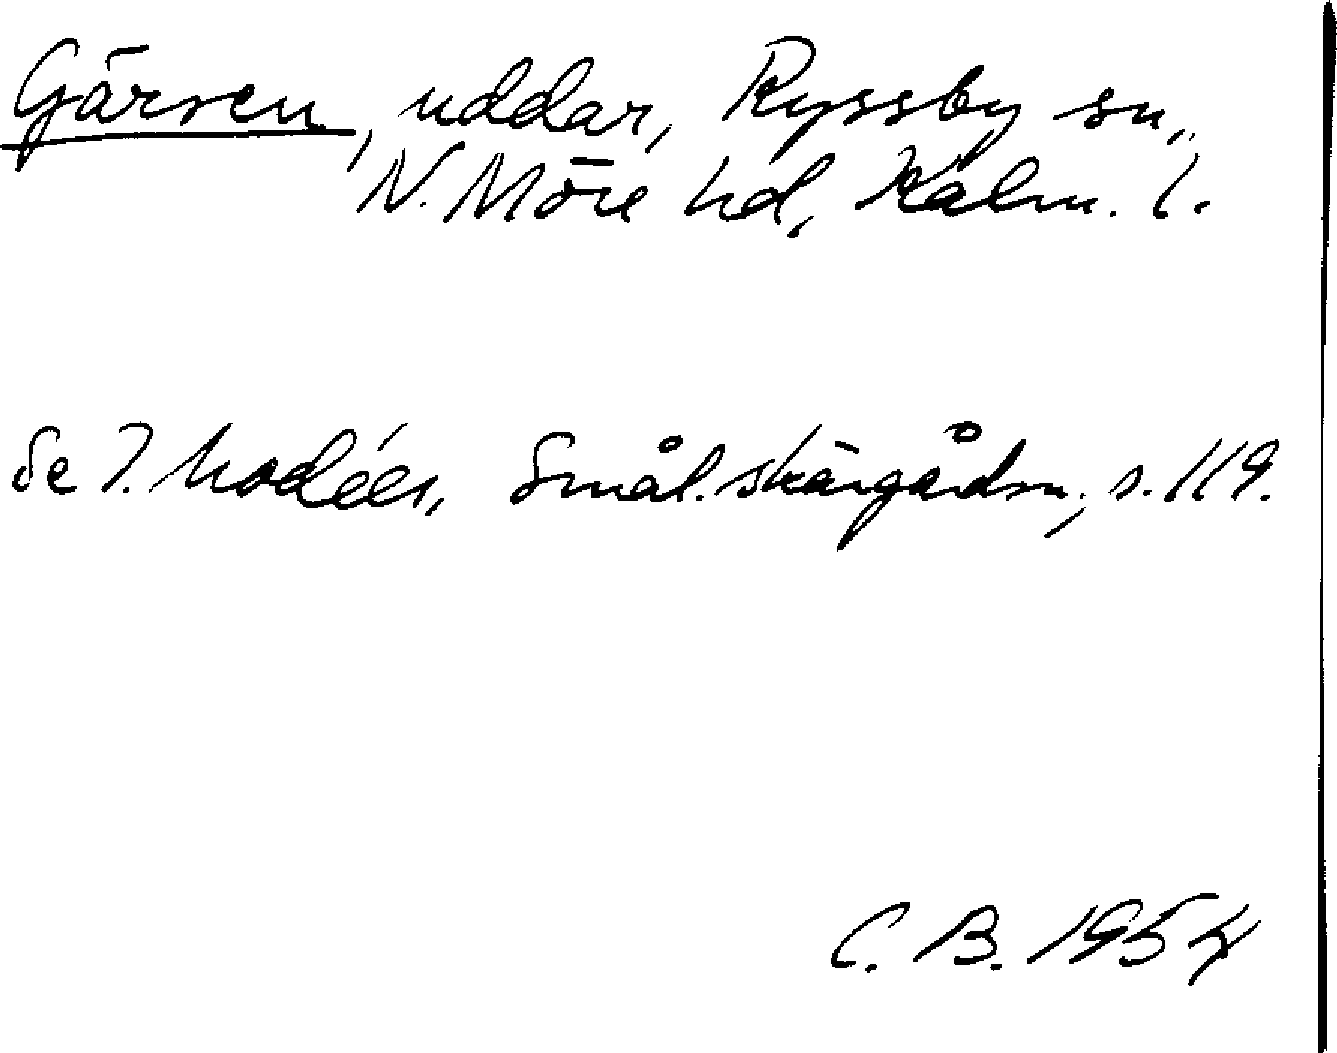 Gärsen, uddar, Ryssby sn,
N. Möre hd, Kalm. l.
Se I. Modéer, Smål. skärgårdsn., s. 119.
C. B. 1954